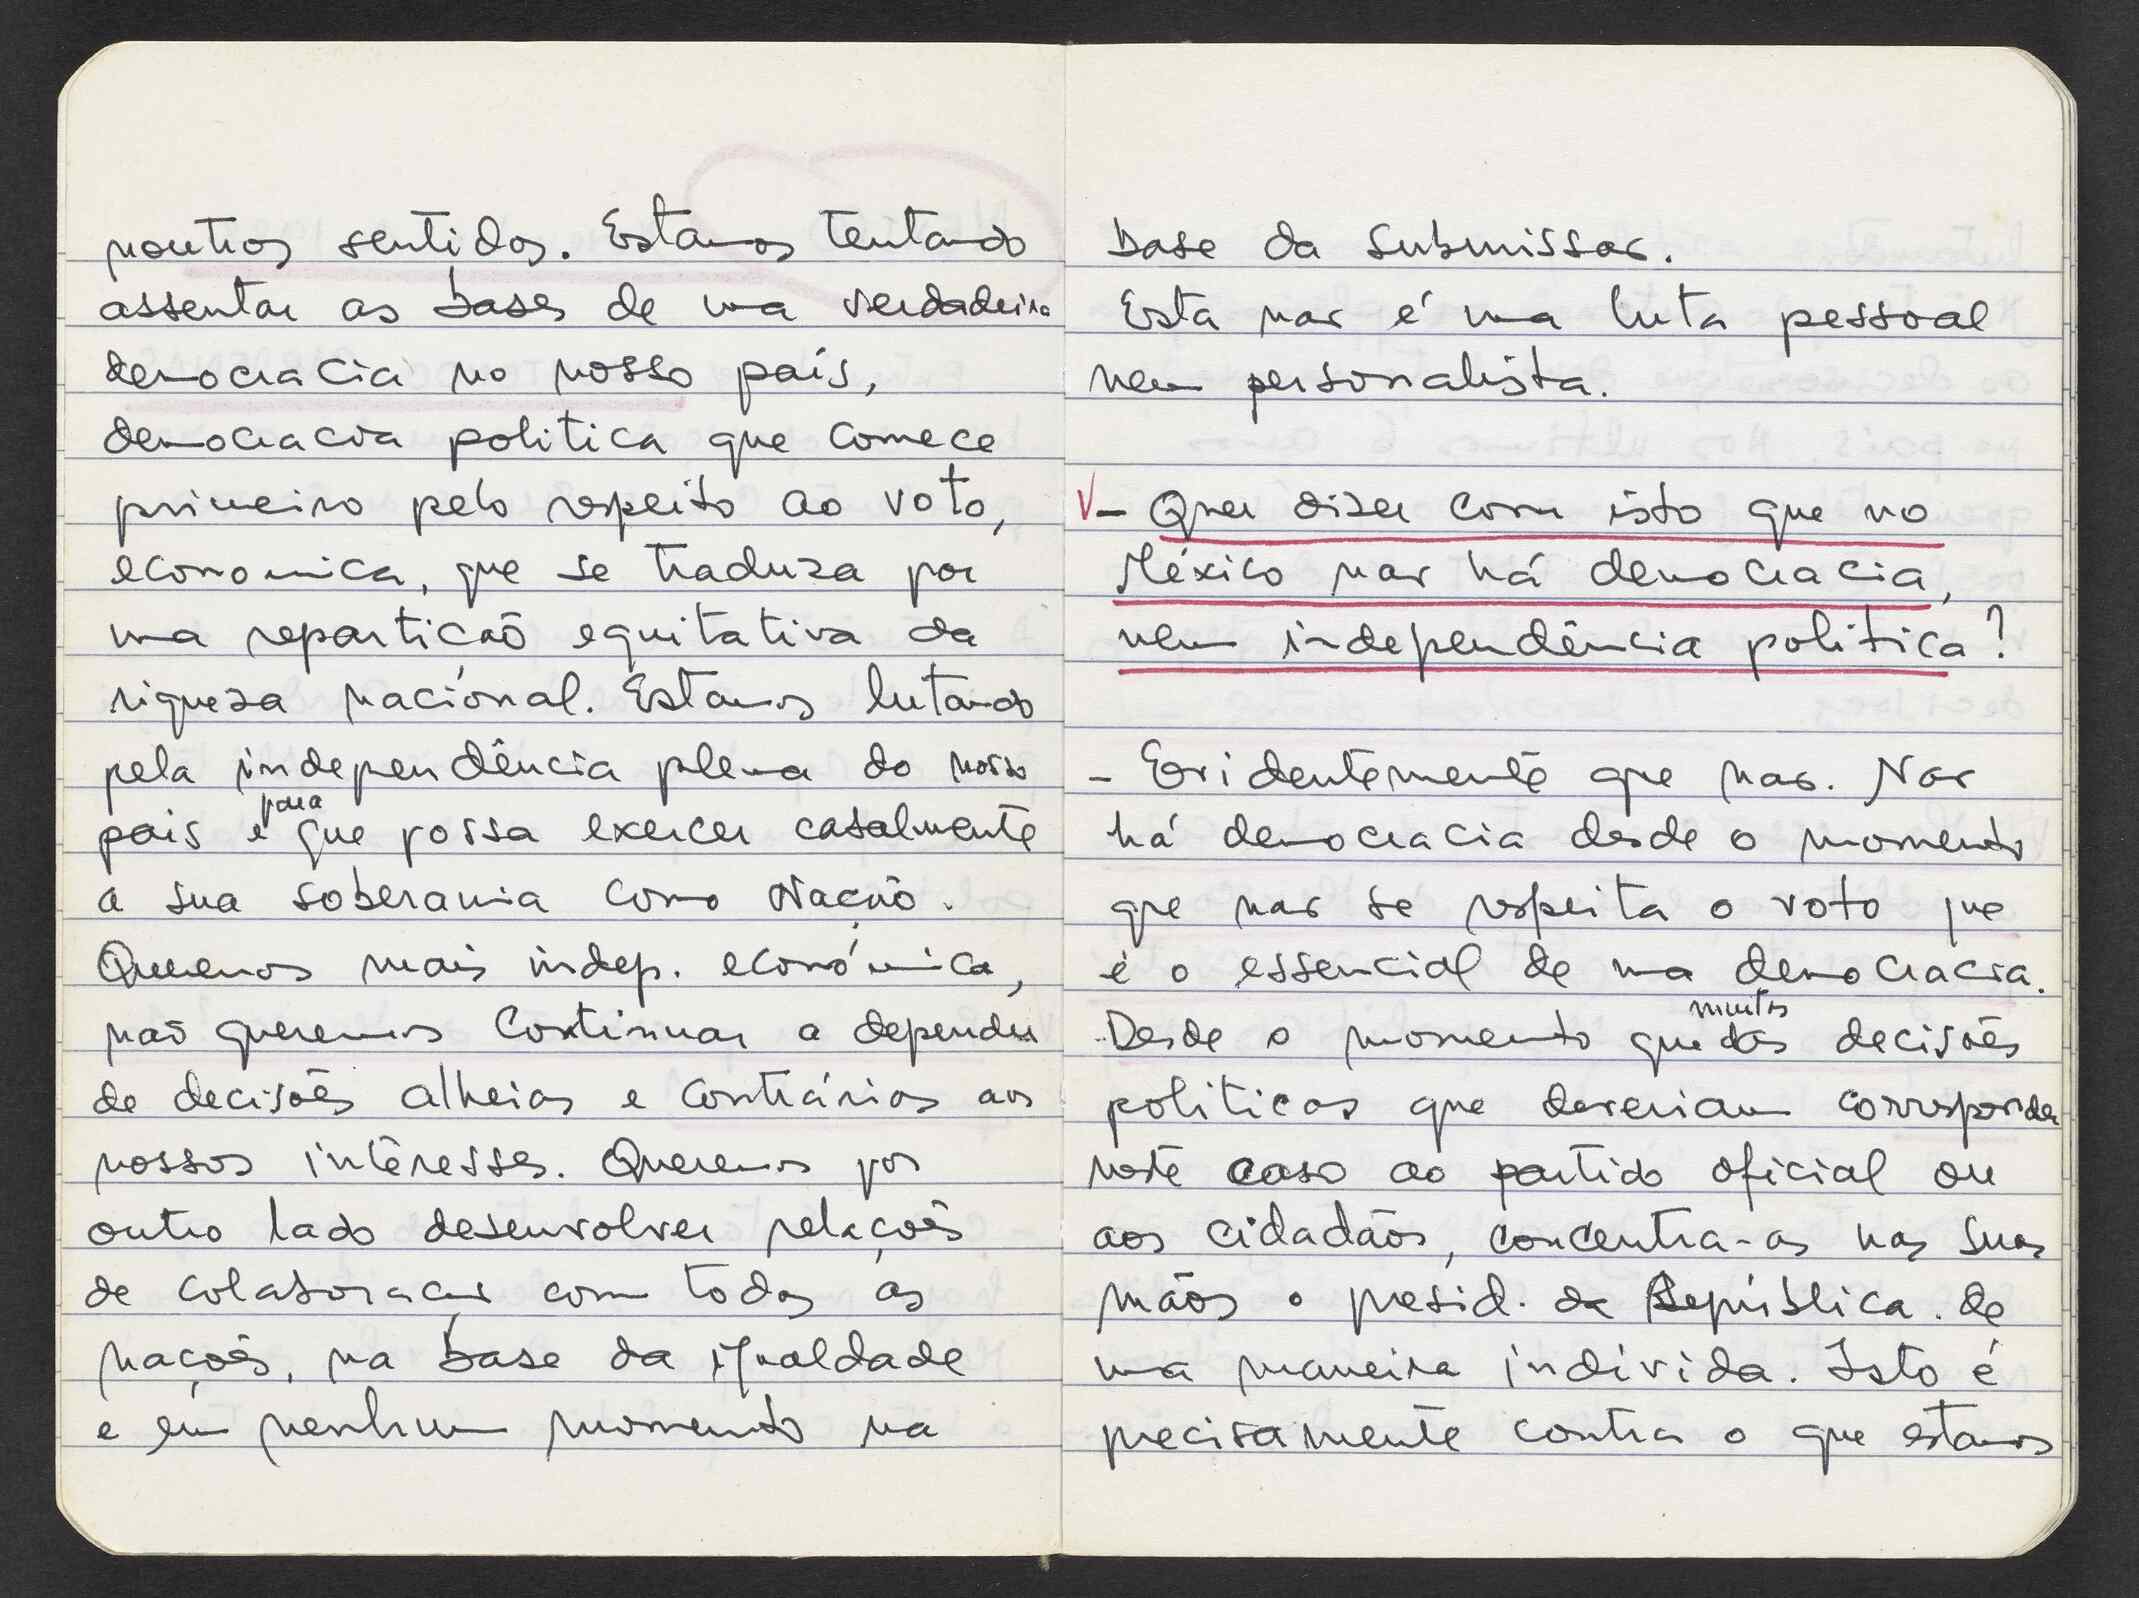 noutros sentidos. Estamos tentando
assentar as bases de uma verdadeira
democracia no nosso país,
democracia politica que comece
primeiro pelo respeito ao voto,
economica, que se traduza por
uma repartição equitativa da
riqueza nacional. Estamos lutando
pela independência plena do nosso
para
pais e que possa exercer casalmente
a sua soberania como Nação.
Queremos mais indep. económica,
não queremos continuar a depender
de decisões alheias e contrárias aos
nossos interesses. Queremos por
outro lado desenvolver relações
de colaboração com todas as
nações, na base da igualdade
e em nenhum momento na
base da submissão.
Esta não é uma luta pessoal
nem personalista.
V- Quer dizer com isto que no
México não há democracia,
nem independência politica?
- Evidentemente que não. Não
há democracia desde o momento
que não se respeita o voto que
é o essencial de uma democracia.
muitas
Desde o momento que das decisões
politicas que deveriam corresponder
neste caso ao partido oficial ou
aos cidadãos, concentra-as nas suas
mãos o presid. da República. de
uma maneira individa. Isto é
precisamente contra o que estamos